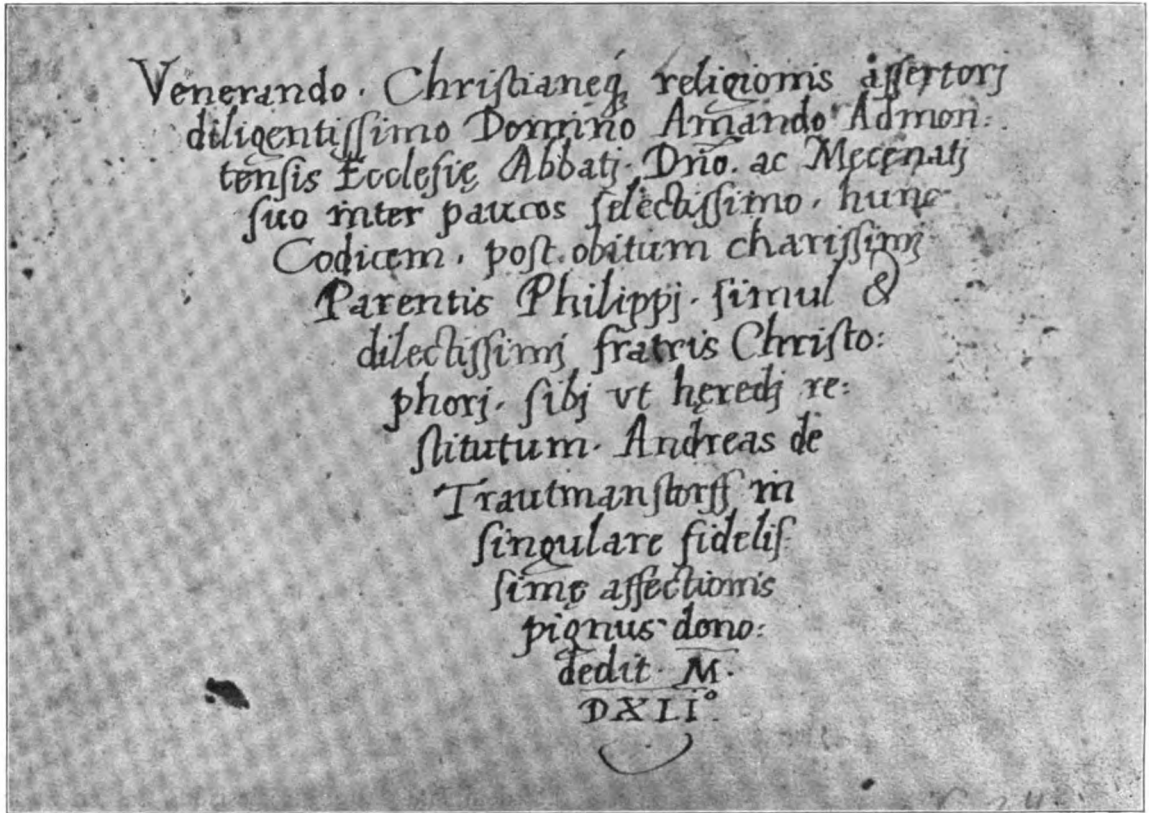 Venerando · Christianeq́ꝫ religionis assertorj
diligentissimo Domino Amando Admon:
tensis Ecclesię Abbatj · Dño. ac Męcęnatj
suo inter paucos selectissimo · hunc
Codicem · post obitum charissimj
Parentis Philippj · simul &
dilectissimj fratris Christo:
phorj · sibj vt hęredj re:
stitutum · Andreas de
Trautmanstorff in
singulare fidelis:
simę affectionis
pignus dono:
dedit · M ·
DXLI°.